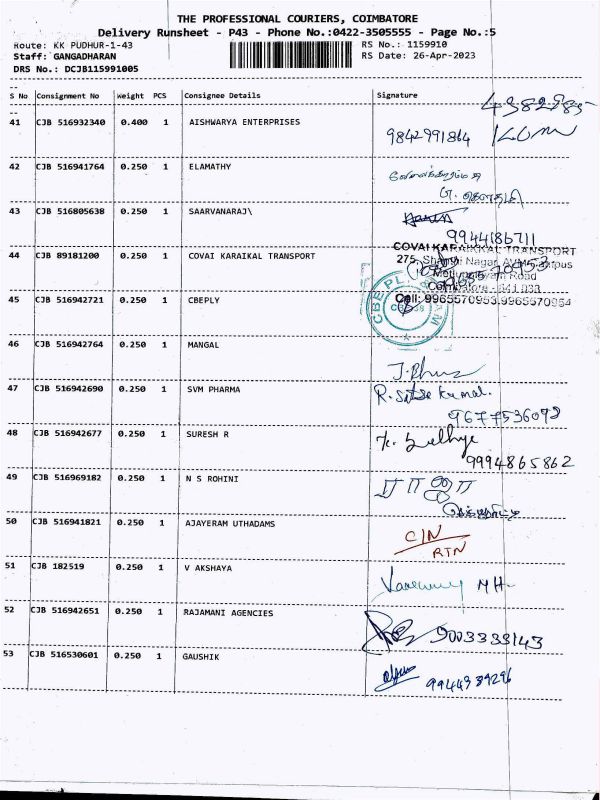 THE PROFESSIONAL COURIERS, COIMBATORE
Delivery Runsheet - P43 - Phone No.:0422-3505555 - Page No.:5
Route: KK PUDHUR-1-43 RS No.: 1159910
Staff: GANGADHARAN RS Date: 26-Apr-2023
DRS No.: DCJB115991005
S No Consignment No Weight PCS Consignee Details Signature
41 CJB 516932340 0.400 1 AISHWARYA ENTERPRISES
9842991864
42 CJB 516941764 0.250 1 ELAMATHY
43 CJB 516805638 0.250 1 SAARVANARAJ\
9944186711
44 CJB 89181200 0.250 1 COVAI KARAIKAL TRANSPORT COVAI KARAIKKAL TRANSPORT
275, Nagar,
Road
45 CJB 516942721 0.250 1 CBEPLY Cell: 9965570953,9965570954
46 CJB 516942764 0.250 1 MANGAL
47 CJB 516942690 0.250 1 SVM PHARMA
9677536092
48 CJB 516942677 0.250 1 SURESH R
9994865862
49 CJB 516969182 0.250 1 N S ROHINI
50 CJB 516941821 0.250 1 AJAYERAM UTHADAMS C/N
RTN
51 CJB 182519 0.250 1 V AKSHAYA
52 CJB 516942651 0.250 1 RAJAMANI AGENCIES 9003333143
53 CJB 516530601 0.250 1 GAUSHIK
9944939296